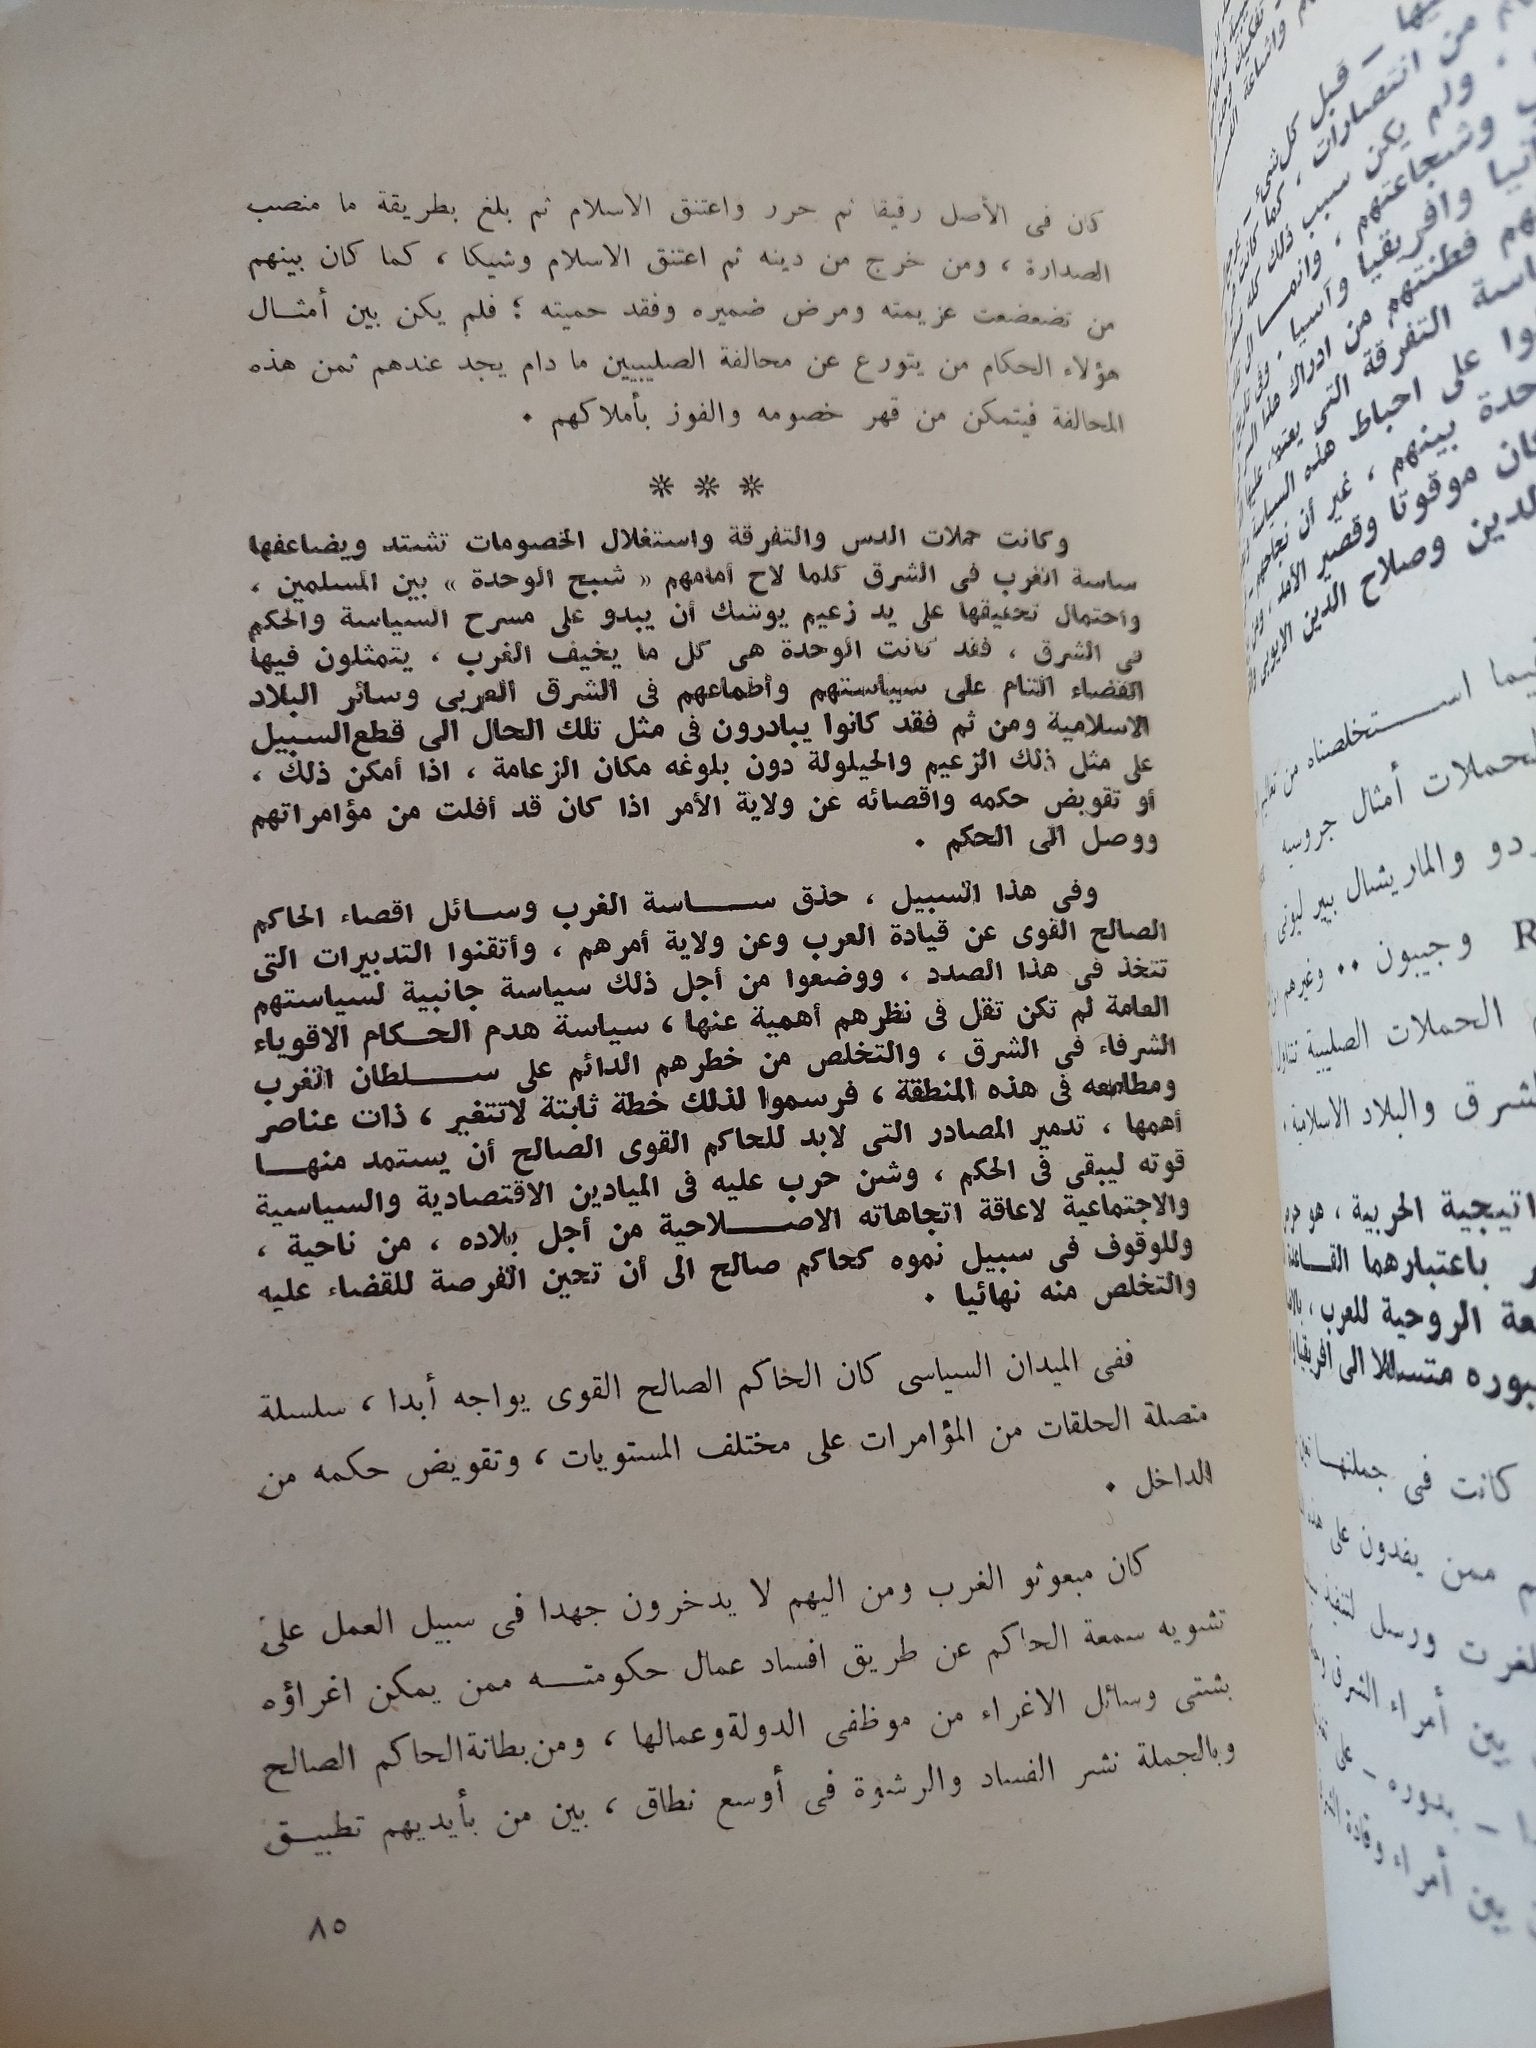 كان فى الأصل رقيقا ثم حرر واعتنق الاسلام ثم بلغ بطريقة ما منصب
الصدارة ، ومن خرج من دينه ثم اعتنق الاسلام وشيكا ، كما كان بينهم
من تضعضعت عزيمته ومرض ضميره وفقد حميته ؛ فلم يكن بين أمثال
هؤلاء الحكام من يتورع عن محالفة الصليبيين ما دام يجد عندهم ثمن هذه
المحالفة فيتمكن من قهر خصومه والفوز بأملاكهم .
❊ ❊ ❊
وكانت حملات الدس والتفرقة واستغلال الخصومات تشتد ويضاعفها
ساسة الغرب فى الشرق كلما لاح أمامهم « شبح الوحدة » بين المسلمين ،
واحتمال تحقيقها على يد زعيم يوشك أن يبدو على مسرح السياسة والحكم
فى الشرق ، فقد كانت الوحدة هى كل ما يخيف الغرب ، يتمثلون فيها
القضاء التام على سياستهم وأطماعهم فى الشرق العربى وسائر البلاد
الاسلامية ومن ثم فقد كانوا يبادرون فى مثل تلك الحال الى قطع السبيل
على مثل ذلك الزعيم والحيلولة دون بلوغه مكان الزعامة ، اذا أمكن ذلك ،
أو تقويض حكمه واقصائه عن ولاية الأمر اذا كان قد أفلت من مؤامراتهم
ووصل الى الحكم .
وفى هذا السبيل ، حذق ساسة الغرب وسائل اقصاء الحاكم
الصالح القوى عن قيادة العرب وعن ولاية أمرهم ، وأتقنوا التدبيرات التى
تتخذ فى هذا الصدد ، ووضعوا من أجل ذلك سياسة جانبية لسياستهم
العامة لم تكن تقل فى نظرهم أهمية عنها ، سياسة هدم الحكام الاقوياء
الشرفاء فى الشرق ، والتخلص من خطرهم الدائم على سلطان الغرب
ومطامعه فى هذه المنطقة ، فرسموا لذلك خطة ثابتة لاتتغير ، ذات عناصر
أهمها ، تدمير المصادر التى لابد للحاكم القوى الصالح أن يستمد منها
قوته ليبقى فى الحكم ، وشن حرب عليه فى الميادين الاقتصادية والسياسية
والاجتماعية لاعاقة اتجاهاته الاصلاحية من أجل بلاده ، من ناحية ،
وللوقوف فى سبيل نموه كحاكم صالح الى أن تحين الفرصة للقضاء عليه
والتخلص منه نهائيا .
ففى الميدان السياسى كان الحاكم الصالح القوى يواجه أبدا ، سلسلة
متصلة الحلقات من المؤامرات على مختلف المستويات ، وتقويض حكمه من
الداخل .
كان مبعوثو الغرب ومن اليهم لا يدخرون جهدا فى سبيل العمل على
تشويه سمعة الحاكم عن طريق افساد عمال حكومته ممن يمكن اغراؤه
بشتى وسائل الاغراء من موظفى الدولة وعمالها ، ومن بطانة الحاكم الصالح
وبالجملة نشر الفساد والرشوة فى أوسع نطاق ، بين من بأيديهم تطبيق
٨٥
قبل كل شىء
من انتصارات ، كما كانت
ولم يكن سبب ذلك كله
وشجاعتهم ، وانما
وافريقيا وآسيا . وفى
فطنتهم من ادراك هذا
التفرقة التى يعتمد عليها
على احباط هذه السياسة
بينهم ، غير أن نجاحهم
موقوتا وقصير الأمد ،
الدين وصلاح الدين الايوبى
استخلصناه من
الحملات أمثال جروسيه
والماريشال بيير
R وجيبون .. وغيرهم
الحملات الصليبية
الشرق والبلاد الاسلامية .
الحربية ، هو
باعتبارهما
الروحية للعرب ،
متسللا الى افريقيا
كانت فى جملتها
ممن يفدون على هذه
ورسل لتنفيذ
بين أمراء الشرق
بدوره – على
بين أمراء وقادة